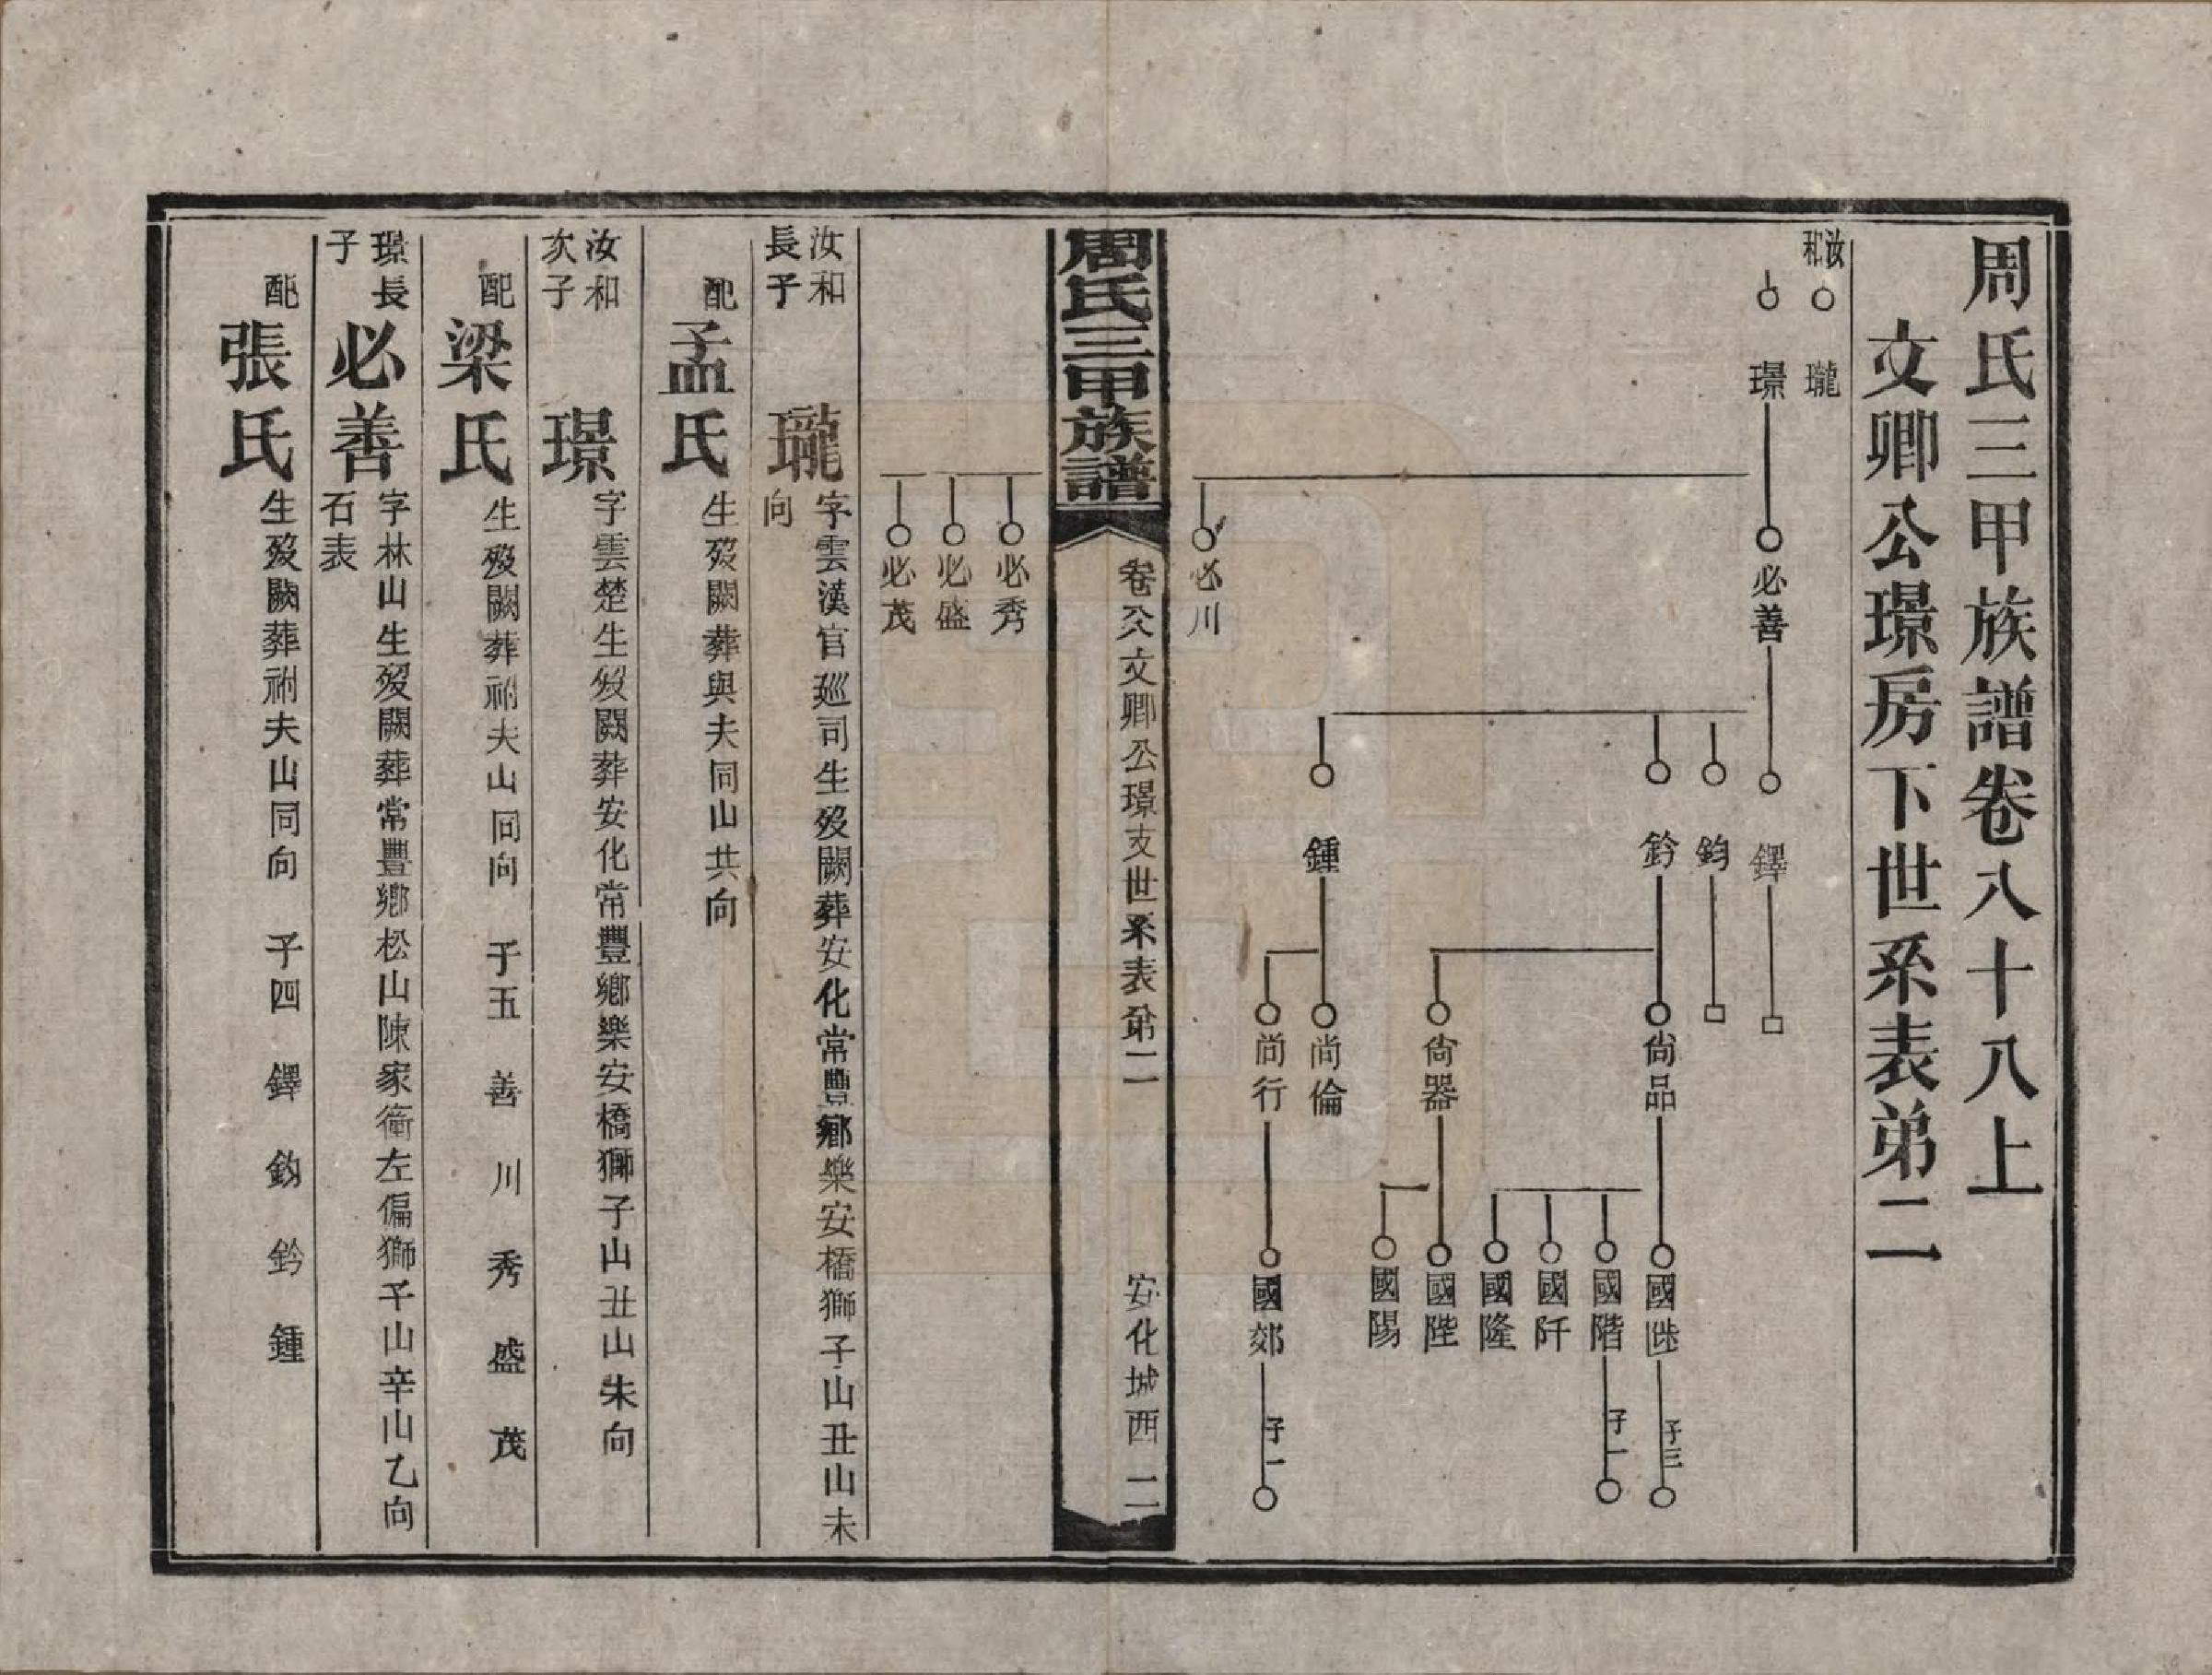 周氏三甲族譜卷八十八上
文卿公璟房下世系表弟二
汝和
瓏
璟
必善
鐸
鈞
鈐
尚品
國階
子一
國阡
國隆
尚器
國陛
國陽
鍾
尚倫
尚行
國郊
子一
子三
必川
周氏三甲族譜
卷八八文卿公璟支世系表第二
安化城西
二
必秀
必盛
必茂
汝和長子
瓏
字雲漢官廵司生歿闕葬安化常豐鄉樂安橋獅子山丑山未
向
配
孟氏
生歿闕葬與夫同山共向
汝和次子
璟
字雲楚生歿闕葬安化常豐鄉樂安橋獅子山丑山朱向
配
梁氏
生歿闕葬祔夫山同向 子五 善 川 秀 盛 茂
璟長子
必善
字林山生歿闕葬常豐鄉松山陳家衝左偏獅子山辛山乙向
石表
配
張氏
生歿闕葬祔夫山同向 子四 鐸 鈞 鈐 鍾